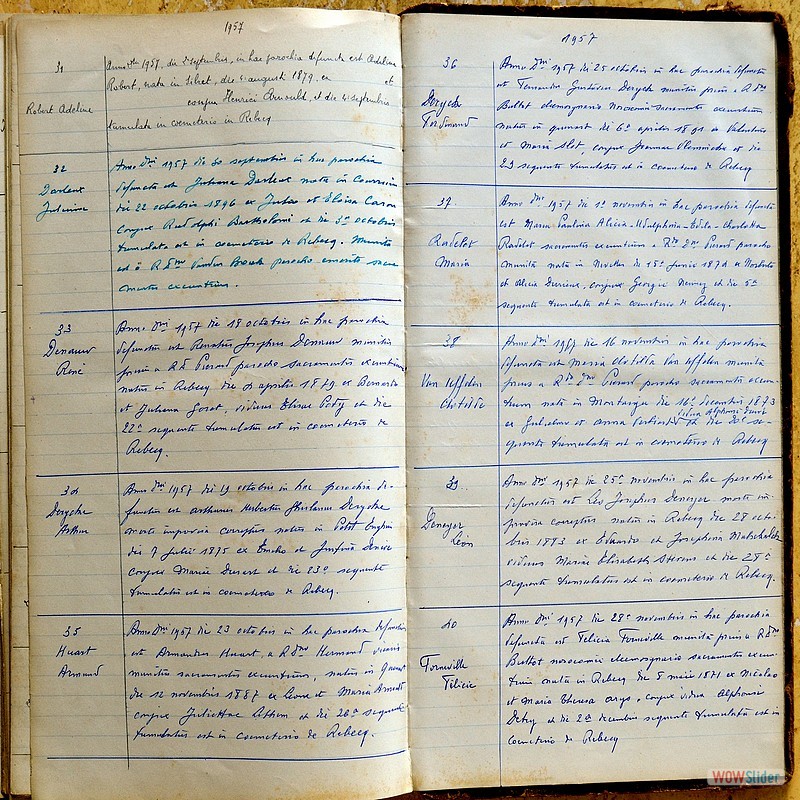 1957
31
Robert Adeline
Anno Dni 1957, die 2 septembris, in hac parochia defuncta est Adelina
Robert, nata in Sibret, die 4 august 1879, ex et
conjux Henrici Arnould, et die 4 septembris
tumulata in coemeterio in Rebecq
32
Juliana
Anno Dni 1957 die 30 septembris in hac parochia
defuncta est Juliana nata in
die 22 octobris 1896 ex Julio et Eloisa Caron
conjux Rudolphi Bartholomi et die 3a octobris
tumulata est in coemeterio de Rebecq. Munita
est a R Dno Vanden parocho emerito sacra
mentis exeuntium.
33
René
Anno Dni 1957 die 18 octobris in hac parochia
defunctus est Renatus Josephus munitus
prius a RD Pierard parocho sacramentis exeuntium
natus in Rebecq die 2 aprilis 1879 ex Bernardo
et Juliana viduus Elisae et die
22a sequente tumulatus est in coemeterio de
Rebecq.
34
Derycke
Arthur
Anno Dni 1957 die 19 octobris in hac parochia de-
functus est Arthurus Herbertus Ghislanus Derycke
morte improvisa correptus natus in Petit Enghien
die 7 Julii 1875 ex et
conjux Mariae et die 23a sequente
tumulatus est in coemeterio de Rebecq.
35
Huart
Armand
Anno Dni 1957 die 23 octobris in hac parochia defunctus
est Armandus Huart, a R Dno Hermand vicario
munitus sacramentis exeuntium, natus in
die 12 novembris 1887 ex Leone et Maria
conjux Juliettae et die 26a sequente
tumulatus est in coemeterio de Rebecq.
1957
36
Derycke
Ferdinand
Anno Dni 1957 die 25 octobris in hac parochia defunctus
est Fernandus Gustavus Derycke munitus prius a R Dno
Bultot elemosynario nosocomii sacramentis exeuntium
natus in die 6a aprilis 1891 ex Valentino
et Maria conjux Joannae et die
29 sequente tumulatus est in coemeterio de Rebecq
37
Radelet
Maria
Anno Dni 1957 die 12 novembris in hac parochia defuncta
est Maria Paulina Alicia Adulphina Edula Charlotta
Radelet sacramentis exeuntium a Rdo Dno Pierard parocho
munita nata in Nivelles die 15a Junii 1874 ex Norberto
et Alicia conjux Georgii et die 5a
sequente tumulata est in coemeterio de Rebecq.
38
Van Uffelen
Clotilde
Anno Dni 1957 die 16 novembris in hac parochia
defuncta est Maria Clotilda Van Uffelen munita
prius a Rdo Dno Pierard parocho sacramentis exeun-
tium nata in die 16a decembris 1873
vidua Alphonsi
ex Gulielmo et Anna et die 20a se-
quente tumulata est in coemeterio de Rebecq
39
Deneyer
Léon
Anno Dni 1957 die 25a novembris in hac parochia
defunctus est Leo Josephus Deneyer morte im-
provisa correptus natus in Rebecq die 28 octo-
bris 1883 ex Eduardo et Josephina
viduus Mariae Elisabeth Stevens et die 28a
sequente tumulatus est in coemeterio de Rebecq.
40
Tonneville
Félicie
Anno Dni 1957 die 28a novembris in hac parochia
defuncta est Felicia Tonneville munita prius a R Dno
Bultot nosocomii elemosynario sacramentis exeun-
tium nata in Rebecq die 5 maii 1871 ex Nicolao
et Maria Theresa conjux vidua Alphonsi
Detry et die 2a decembris sequente tumulata est in
coemeterio de Rebecq
WOWSlider